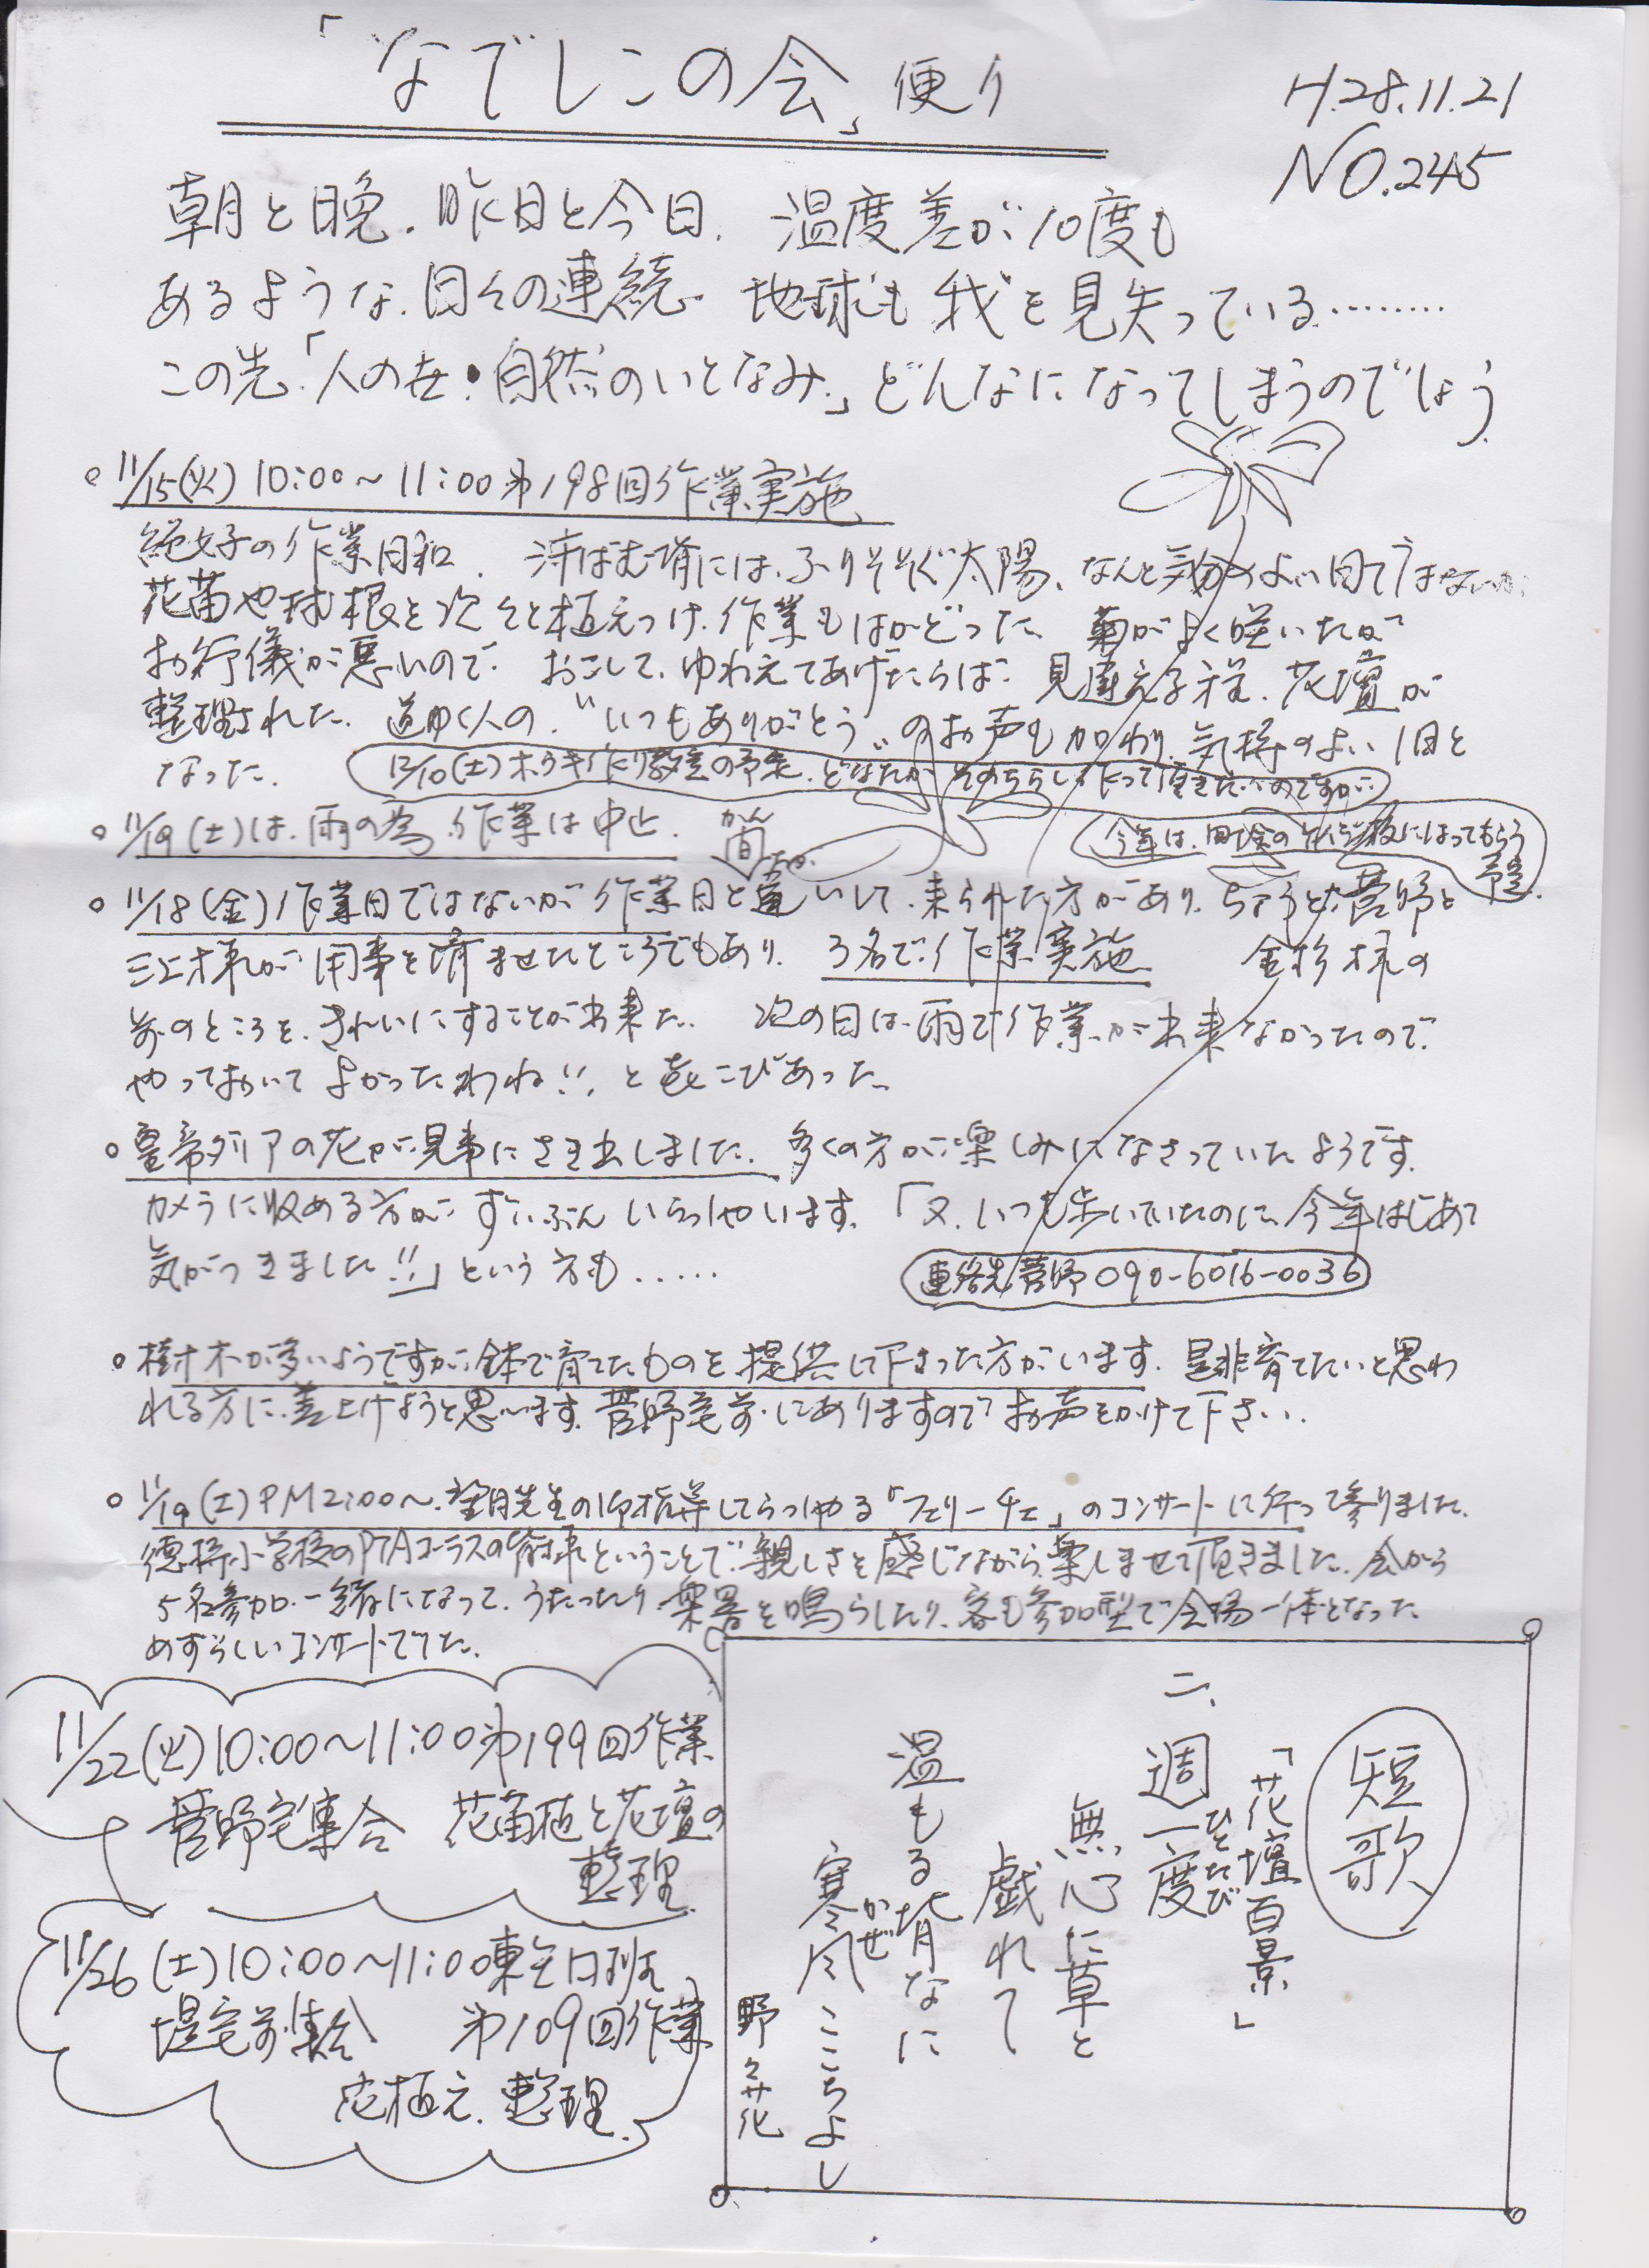 「なでしこの会」便り
H.28.11.21
NO.245
朝と晩、昨日と今日、温度差が10度も
あるような、日々の連続、地球も我を見失っている………
この先、「人の世・自然のいとなみ」どんなになってしまうのでしょう
○ 11/15(火) 10:00～11:00 第198回作業実施
絶好の作業日和、汗ばむ背には、ふりそそぐ太陽、なんと気分のよい日ではないか、
花苗や球根を次々と植えつけ、作業もはかどった、菊がよく咲いたが
お行儀が悪いので、おこして、ゆわえてあげたらば、見違える程、花壇が
整理された、道ゆく人の、"いつもありがとう"のお声も加わり、気持のよい1日と
なった、
12/10(土)ホウキ作り教室の予定、どなたか そのちらし作って頂きたいのですが…
今年は、町会の掲示板にはってもらう
予定、
○ 11/19(土)は、雨の為、作業は中止、
○ 11/18(金)作業日ではないが作業日と勘ちがいして、来られた方があり、ちょうど菅野と
三上様が用事を済ませたところでもあり、3名で作業実施 金杉様の
前のところを、きれいにすることが出来た、次の日は、雨で作業が出来なかったので、
やっておいてよかったわね!!、と喜こびあった、
○ 皇帝ダリアの花が見事にさき出しました、多くの方が楽しみになさっていたようです、
カメラに収める方がずいぶんいらっしゃいます、「又、いつも歩いていたのに、今年はじめて
気がつきました!!」という方も.....
連絡先菅野090-6016-0036
○ 樹木が多いようですが、鉢で育てたものを提供して下さった方がいます、是非育てたいと思わ
れる方に、差上げようと思います、菅野宅前にありますのでお声をかけて下さい、
○ 11/19(土)PM2:00～、望月先生の御指導してらっしゃる「フェリーチェ」のコンサートに行って参りました、
徳持小学校のPTAコーラスの前身ということで、親しさを感じながら、楽しませて頂きました、会から
5名参加、一緒になって、うたったり、楽器を鳴らしたり、客も参加型で会場一体となった
めずらしいコンサートでした、
11/22(火)10:00～11:00第199回作業
菅野宅集合 花苗植と花壇の
整理、
11/26(土)10:00～11:00東全日班
堤宅前集合 第109回作業
花植え、整理、
短歌
「花壇百景」
二、週一度
ひとたび
無心に草と
戯れて
温もる背なに
寒風ここちよし
かぜ
野々花